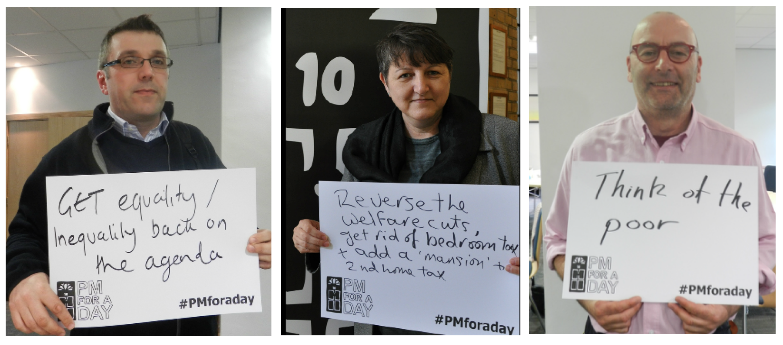 GET equality /
Inequality back on
the agenda
PM
FOR A
DAY
#PMforaday
10
Reverse the
welfare cuts,
get rid of bedroom tax
+ add a 'mansion' +
2nd home tax
PM
FOR A
DAY
#PMforaday
Think of the
poor
PM
FOR A
DAY
#PMforaday